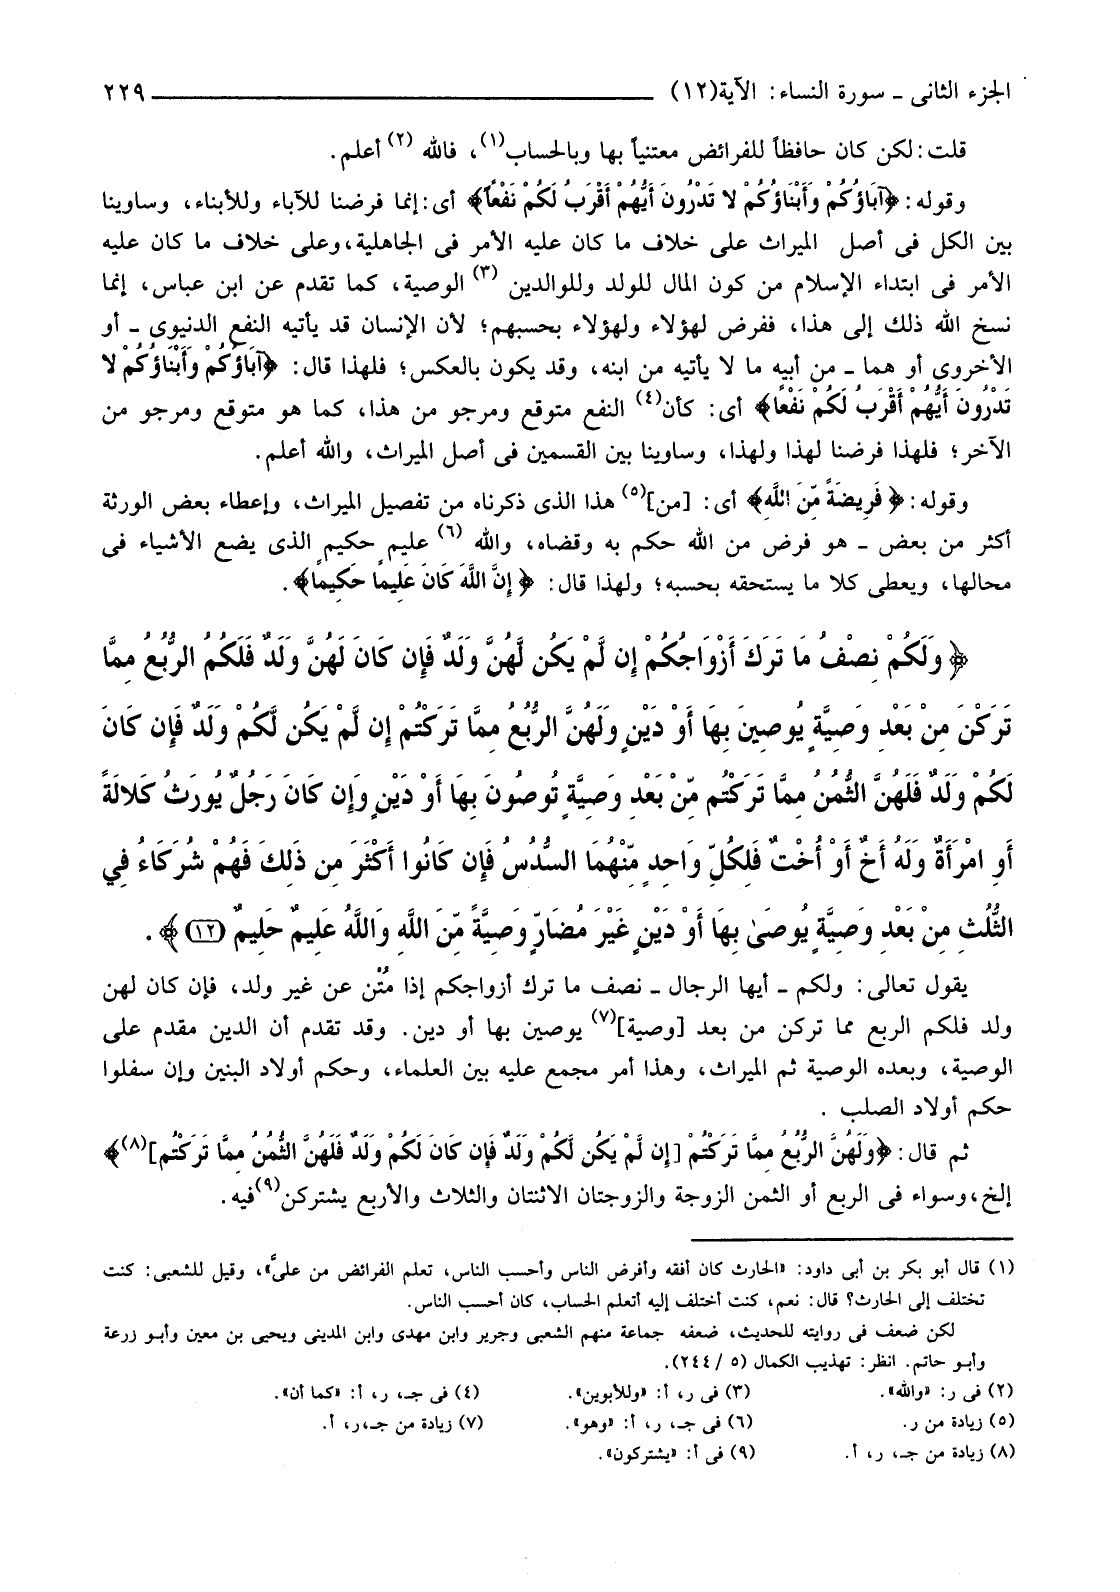 الجزء الثانى ـ سورة النساء: الآية (١٢) ــــــــــــــــــــــــــــــــ ٢٢٩
قلت: لكن كان حافظاً للفرائض معتنياً بها وبالحساب(١)، فالله (٢) أعلم.
وقوله: ﴿آبَاؤُكُمْ وَأَبْنَاؤُكُمْ لا تَدْرُونَ أَيُّهُمْ أَقْرَبُ لَكُمْ نَفْعاً﴾ أى: إنما فرضنا للآباء وللأبناء، وساوينا
بين الكل فى أصل الميراث على خلاف ما كان عليه الأمر فى الجاهلية، وعلى خلاف ما كان عليه
الأمر فى ابتداء الإسلام من كون المال للولد وللوالدين (٣) الوصية، كما تقدم عن ابن عباس، إنما
نسخ الله ذلك إلى هذا، ففرض لهؤلاء ولهؤلاء بحسبهم؛ لأن الإنسان قد يأتيه النفع الدنيوى ـ أو
الأخروى أو هما ـ من أبيه ما لا يأتيه من ابنه، وقد يكون بالعكس؛ فلهذا قال: ﴿آبَاؤُكُمْ وَأَبْنَاؤُكُمْ لا
تَدْرُونَ أَيُّهُمْ أَقْرَبُ لَكُمْ نَفْعًا﴾ أى: كأن(٤) النفع متوقع ومرجو من هذا، كما هو متوقع ومرجو من
الآخر؛ فلهذا فرضنا لهذا ولهذا، وساوينا بين القسمين فى أصل الميراث، والله أعلم.
وقوله: ﴿ فَرِيضَةً مِّنَ اللَّهِ﴾ أى: [من](٥) هذا الذى ذكرناه من تفصيل الميراث، وإعطاء بعض الورثة
أكثر من بعض ـ هو فرض من الله حكم به وقضاه، والله (٦) عليم حكيم الذى يضع الأشياء فى
محالها، ويعطى كلا ما يستحقه بحسبه؛ ولهذا قال: ﴿ إِنَّ اللَّهَ كَانَ عَلِيمًا حَكِيمًا﴾.
﴿ وَلَكُمْ نِصْفُ مَا تَرَكَ أَزْوَاجُكُمْ إِن لَّمْ يَكُن لَّهُنَّ وَلَدٌ فَإِن كَانَ لَهُنَّ وَلَدٌ فَلَكُمُ الرُّبُعُ مِمَّا
تَرَكْنَ مِنْ بَعْدِ وَصِيَّةٍ يُوصِينَ بِهَا أَوْ دَيْنٍ وَلَهُنَّ الرُّبُعُ مِمَّا تَرَكْتُمْ إِن لَّمْ يَكُن لَّكُمْ وَلَدٌ فَإِن كَانَ
لَكُمْ وَلَدٌ فَلَهُنَّ الثُّمُنُ مِمَّا تَرَكْتُم مِّنْ بَعْدِ وَصِيَّةٍ تُوصُونَ بِهَا أَوْ دَيْنٍ وَإِن كَانَ رَجُلٌ يُورَثُ كَلالَةً
أَوِ امْرَأَةٌ وَلَهُ أَخٌ أَوْ أُخْتٌ فَلِكُلِّ وَاحِدٍ مِّنْهُمَا السُّدُسُ فَإِن كَانُوا أَكْثَرَ مِن ذَلِكَ فَهُمْ شُرَكَاءُ فِي
الثُّلُثِ مِنْ بَعْدِ وَصِيَّةٍ يُوصَىٰ بِهَا أَوْ دَيْنٍ غَيْرَ مُضَارٍّ وَصِيَّةً مِّنَ اللَّهِ وَاللَّهُ عَلِيمٌ حَلِيمٌ (١٢)﴾ .
يقول تعالى: ولكم ـ أيها الرجال ـ نصف ما ترك أزواجكم إذا مُتْن عن غير ولد، فإن كان لهن
ولد فلكم الربع مما تركن من بعد [وصية](٧) يوصين بها أو دين. وقد تقدم أن الدين مقدم على
الوصية، وبعده الوصية ثم الميراث، وهذا أمر مجمع عليه بين العلماء، وحكم أولاد البنين وإن سفلوا
حكم أولاد الصلب .
ثم قال: ﴿وَلَهُنَّ الرُّبُعُ مِمَّا تَرَكْتُمْ [إِن لَّمْ يَكُن لَّكُمْ وَلَدٌ فَإِن كَانَ لَكُمْ وَلَدٌ فَلَهُنَّ الثُّمُنُ مِمَّا تَرَكْتُم](٨)﴾
إلخ، وسواء فى الربع أو الثمن الزوجة والزوجتان الاثنتان والثلاث والأربع يشتركن(٩) فيه.
(١) قال أبو بكر بن أبى داود: «الحارث كان أفقه وأفرض الناس وأحسب الناس، تعلم الفرائض من علىّ»، وقيل للشعبى: كنت
تختلف إلى الحارث؟ قال: نعم، كنت أختلف إليه أتعلم الحساب، كان أحسب الناس.
لكن ضعف فى روايته للحديث، ضعفه جماعة منهم الشعبى وجرير وابن مهدى وابن المدينى ويحيى بن معين وأبو زرعة
وأبو حاتم. انظر: تهذيب الكمال (٥ / ٢٤٤).
(٢) فى ر: «والله». (٣) فى ر، أ: «وللأبوين». (٤) فى جـ، ر، أ: «كما أن».
(٥) زيادة من ر. (٦) فى جـ، ر، أ: «وهو». (٧) زيادة من جـ،ر، أ.
(٨) زيادة من جـ، ر، أ. (٩) فى أ: «يشتركون».